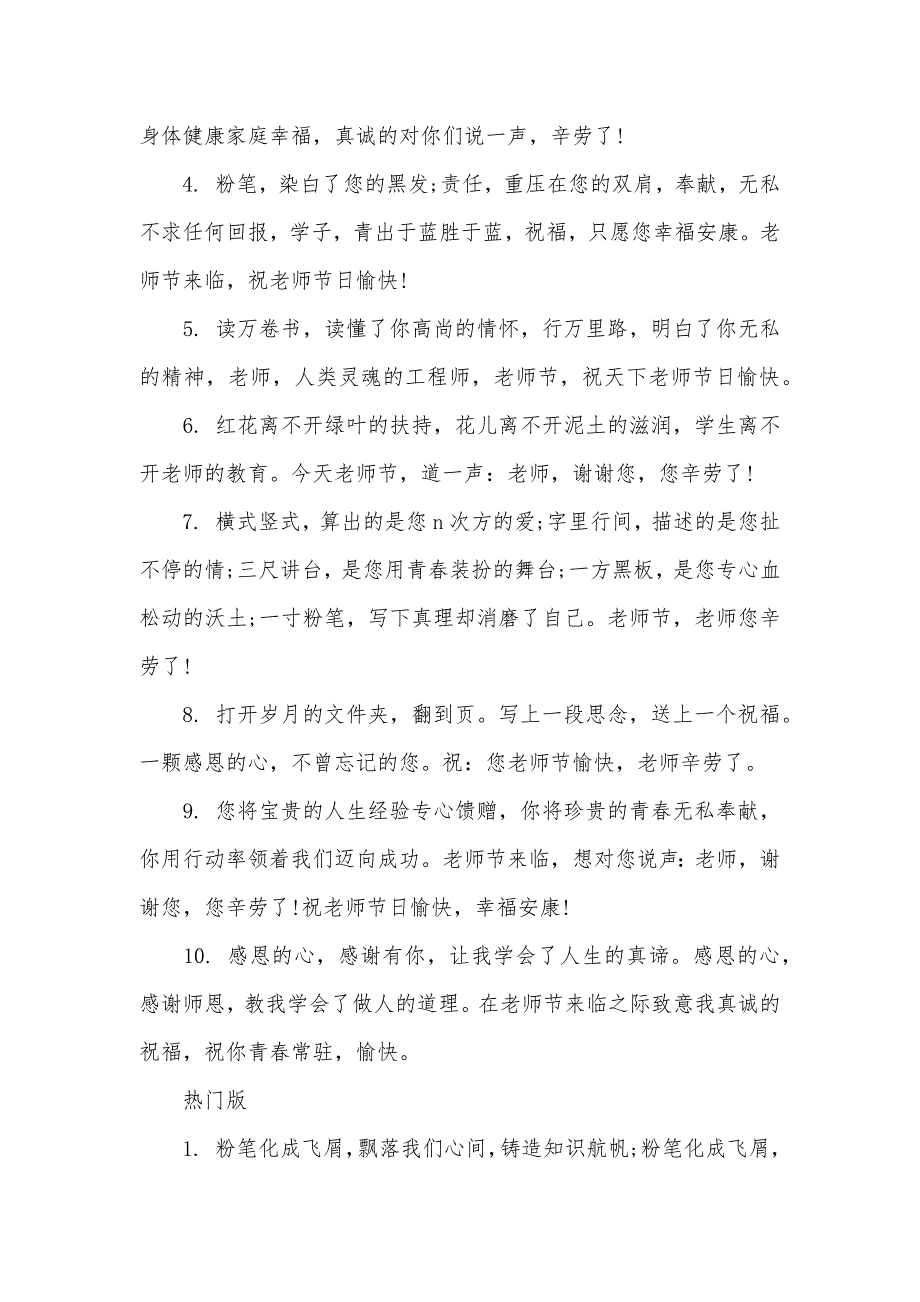 身体健康家庭幸福，真诚的对你们说一声，辛劳了!
4. 粉笔，染白了您的黑发;责任，重压在您的双肩，奉献，无私
不求任何回报，学子，青出于蓝胜于蓝，祝福，只愿您幸福安康。老
师节来临，祝老师节日愉快!
5. 读万卷书，读懂了你高尚的情怀，行万里路，明白了你无私
的精神，老师，人类灵魂的工程师，老师节，祝天下老师节日愉快。
6. 红花离不开绿叶的扶持，花儿离不开泥土的滋润，学生离不
开老师的教育。今天老师节，道一声：老师，谢谢您，您辛劳了!
7. 横式竖式，算出的是您n次方的爱;字里行间，描述的是您扯
不停的情;三尺讲台，是您用青春装扮的舞台;一方黑板，是您专心血
松动的沃土;一寸粉笔，写下真理却消磨了自己。老师节，老师您辛
劳了!
8. 打开岁月的文件夹，翻到页。写上一段思念，送上一个祝福。
一颗感恩的心，不曾忘记的您。祝：您老师节愉快，老师辛劳了。
9. 您将宝贵的人生经验专心馈赠，你将珍贵的青春无私奉献，
你用行动率领着我们迈向成功。老师节来临，想对您说声：老师，谢
谢您，您辛劳了!祝老师节日愉快，幸福安康!
10. 感恩的心，感谢有你，让我学会了人生的真谛。感恩的心，
感谢师恩，教我学会了做人的道理。在老师节来临之际致意我真诚的
祝福，祝你青春常驻，愉快。
热门版
1. 粉笔化成飞屑，飘落我们心间，铸造知识航帆;粉笔化成飞屑，